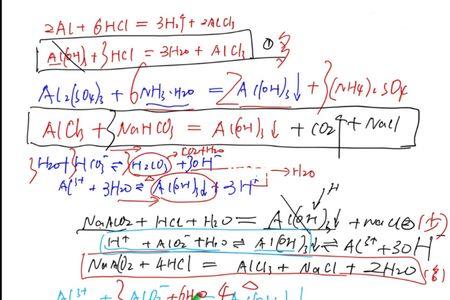 2Al + 6HCl = 3H₂↑ + 2AlCl₃
Al(OH)₃ + 3HCl = 3H₂O + AlCl₃ ①多
Al₂(SO₄)₃ + 6NH₃·H₂O = 2Al(OH)₃↓ + 3(NH₄)₂SO₄
AlCl₃ + 3NaHCO₃ = Al(OH)₃↓ + CO₂↑ + NaCl
CO₂+H₂O
3H₂O + 3HCO₃⁻ ⇌ 3H₂CO₃ + 3OH⁻
→H₂O
Al³⁺ + 3H₂O ⇌ Al(OH)₃↓ + 3H⁺
H
NaAlO₂ + HCl + H₂O = Al(OH)₃↓ + NaCl (少)
H⁺ + AlO₂⁻ + H₂O ⇌ Al(OH)₃↓ ⇌ Al³⁺ + 3OH⁻
NaAlO₂ + 4HCl = AlCl₃ + NaCl + 2H₂O (多)
Al³⁺ + 3AlO₂⁻ + 6H₂O 4